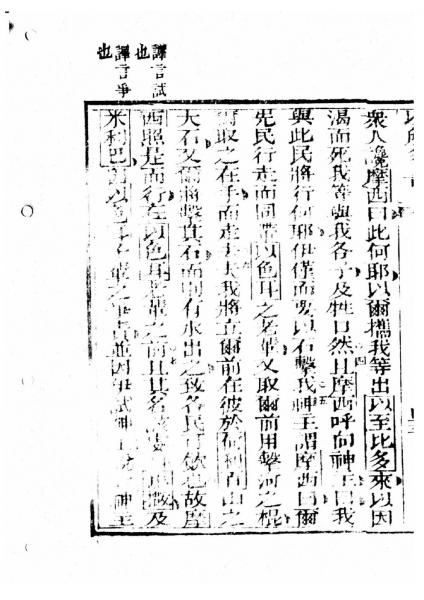 譯言試
也
譯言爭
也
衆人讒摩西曰此何耶以爾攜我等出以至比多來以因
渴而死我等與我各子及牲口然且摩西呼向神主曰我
與此民將行何耶伊僅而要以石擊我神主謂摩西曰爾
先民行走而同帶以色耳之老輩又取爾前用擊河之棍
可取之在手而走去夫我將立爾前在彼於何利百山之
大石又爾將擊其石而則有水出之致各民可飲也故摩
西照是而行在以色耳老輩之前且其名該處曰 及
米利巴 以色耳 輩之爭責並因伊試神主 神主